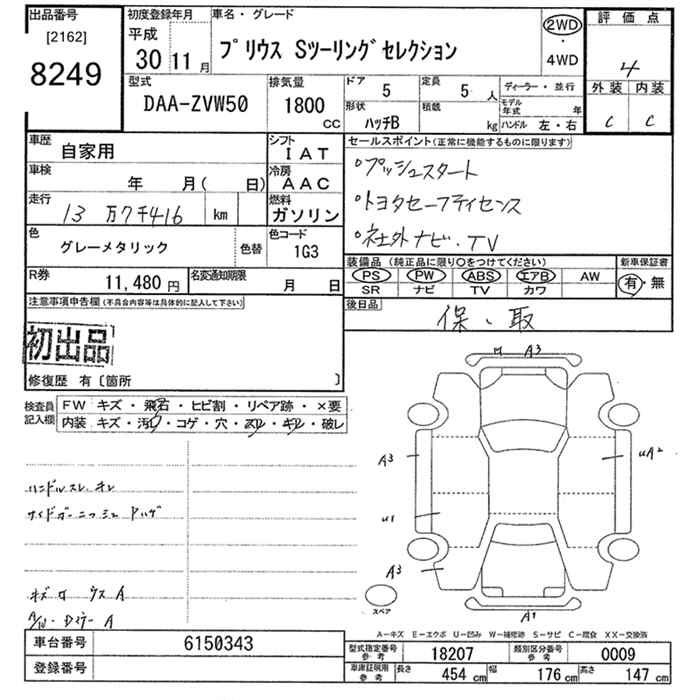 出品番号
[2162]
8249
初度登録年月
平成
30 11月
車名・グレード
プリウス Sツーリングセレクション
2WD
・
4WD
評価点
4
外装 内装
C C
型式
DAA-ZVW50
排気量
1800
CC
ドア 5
定員 5 人
形状 ハッチB
積載 kg
ディーラー・並行
モデル年式 年
ハンドル 左・右
車歴 自家用
シフト IAT
車検 年 月( 日)
冷房 AAC
走行 13万7千416 km
燃料 ガソリン
色 グレーメタリック 色替
色コード 1G3
R券 11,480円
名変通知期限 月 日
セールスポイント(正常に機能するものに限ります)
°プッシュスタート
°トヨタセーフティセンス
°社外ナビ.TV
装備品(純正品に限り○をつけてください)
PS PW ABS エアB AW
SR ナビ TV カワ
新車保証書
有・無
後日品
保、取
注意事項申告欄(不具合内容等は具体的に記入して下さい)
初出品
修復歴 有〔箇所 〕
検査員記入欄
FW キズ・飛石・ヒビ割・リペア跡・×要
内装 キズ・汚レ・コゲ・穴・スレ・キレ・破レ
ハンドルスレ、キレ
サイドガーニッシュ ハゲ
A3
A3
A3
A1
スペア
A-キズ E-エクボ U-凹み W-補修跡 S-サビ C-腐食 XX-交換済
車台番号 6150343
登録番号
型式指定番号 参考 18207
類別区分番号 参考 0009
車庫証明用 参考 長さ 454 cm 幅 176 cm 高さ 147 cm